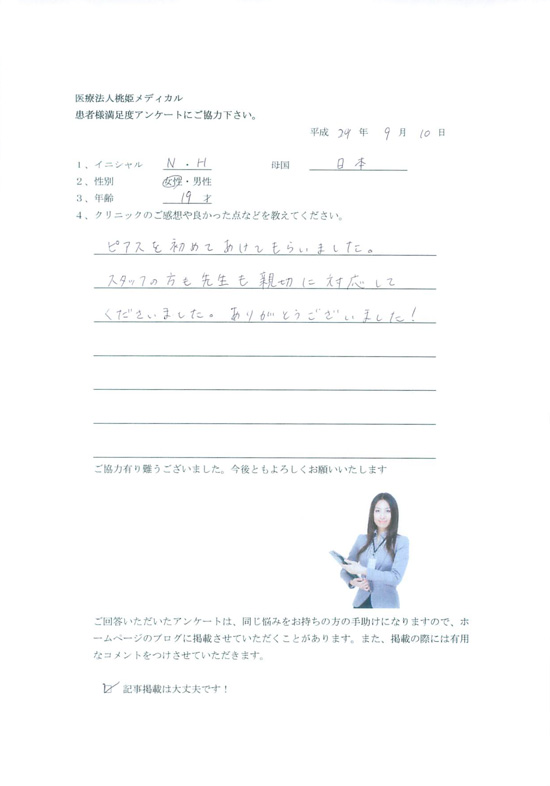 医療法人桃姫メディカル
患者様満足度アンケートにご協力下さい。
平成 29 年 9 月 10 日
1、イニシャル N・H 母国 日本
2、性別 女性・男性
3、年齢 19 才
4、クリニックのご感想や良かった点などを教えてください。
ピアスを初めてあけてもらいました。
スタッフの方も先生も親切に対応して
くださいました。ありがとうございました!
ご協力有り難うございました。今後ともよろしくお願いいたします
ご回答いただいたアンケートは、同じ悩みをお持ちの方の手助けになりますので、ホ
ームページのブログに掲載させていただくことがあります。また、掲載の際には有用
なコメントをつけさせていただきます。
記事掲載は大丈夫です!